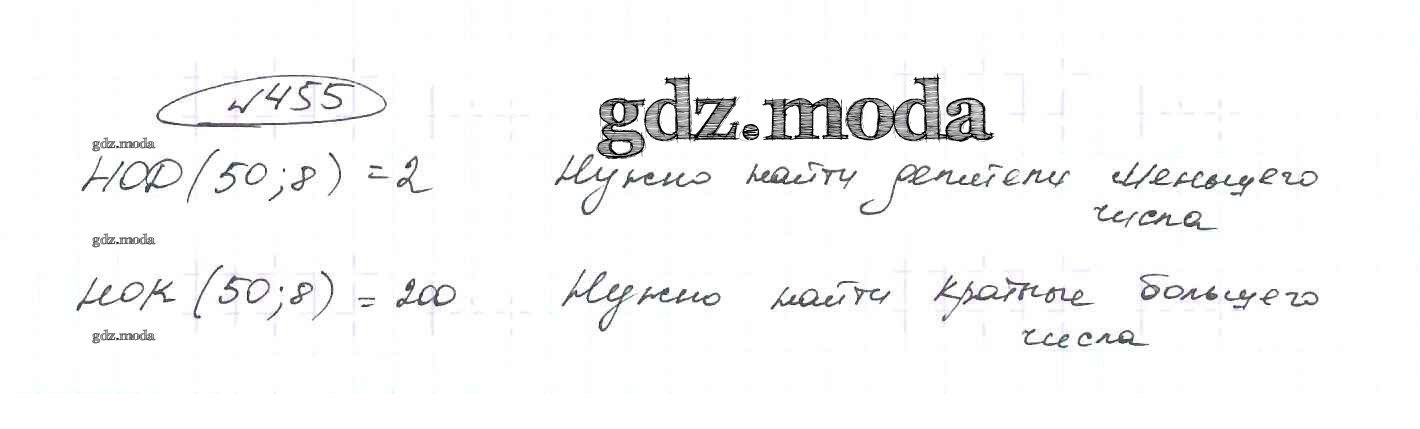 № 455
gdz.moda
gdz.moda
НОД (50; 8) = 2 Нужно найти делители меньшего
числа
gdz.moda
НОК (50; 8) = 200 Нужно найти кратные большего
числа
gdz.moda